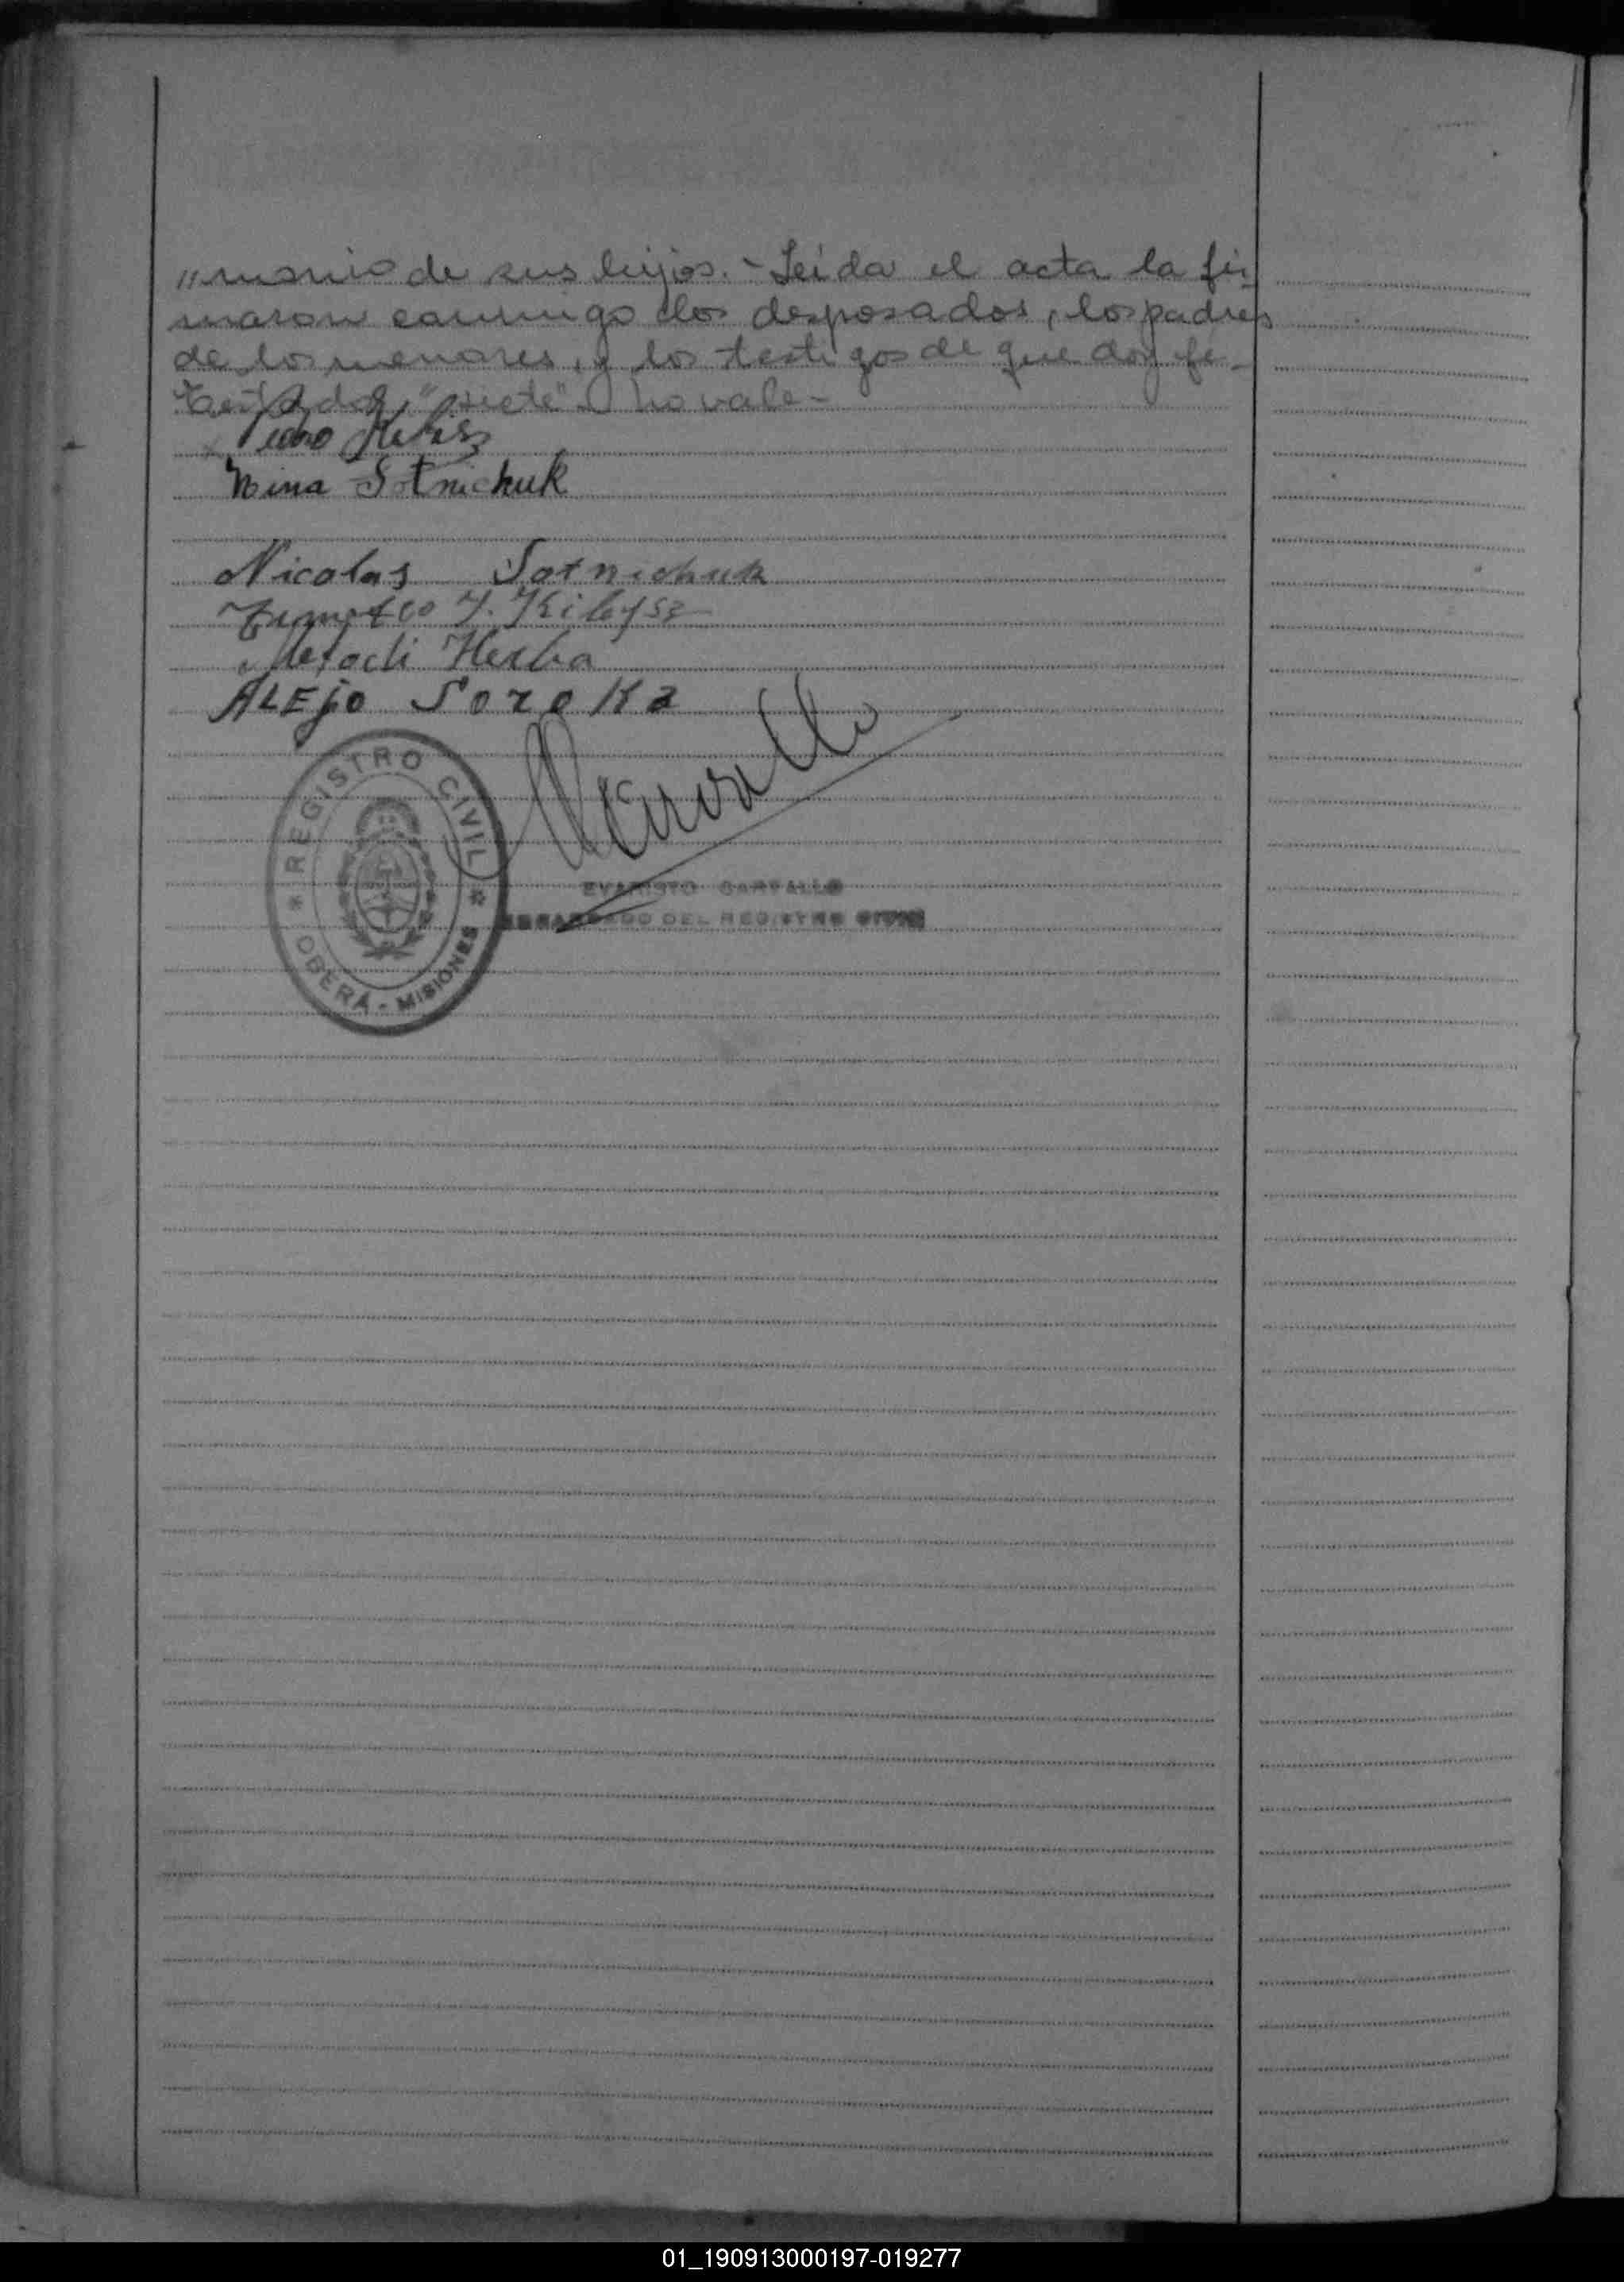 "monio de sus hijos.- Leída el acta la fir
maron conmigo los desposados, los padres
de los menores, y los testigos de que doy fe.-
Testado: "siete" No vale-
Pedro
Nina Sotnichuk
Nicolas Sotnichuk
Metodi Herba
ALEjo Soroka
Carvallo
REGISTRO CIVIL
OBERÁ - MISIONES
EVARISTO CARVALLO
ENCARGADO DEL REGISTRO CIVIL
01_190913000197-019277